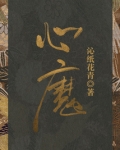 心魔
沁纸花青◎著